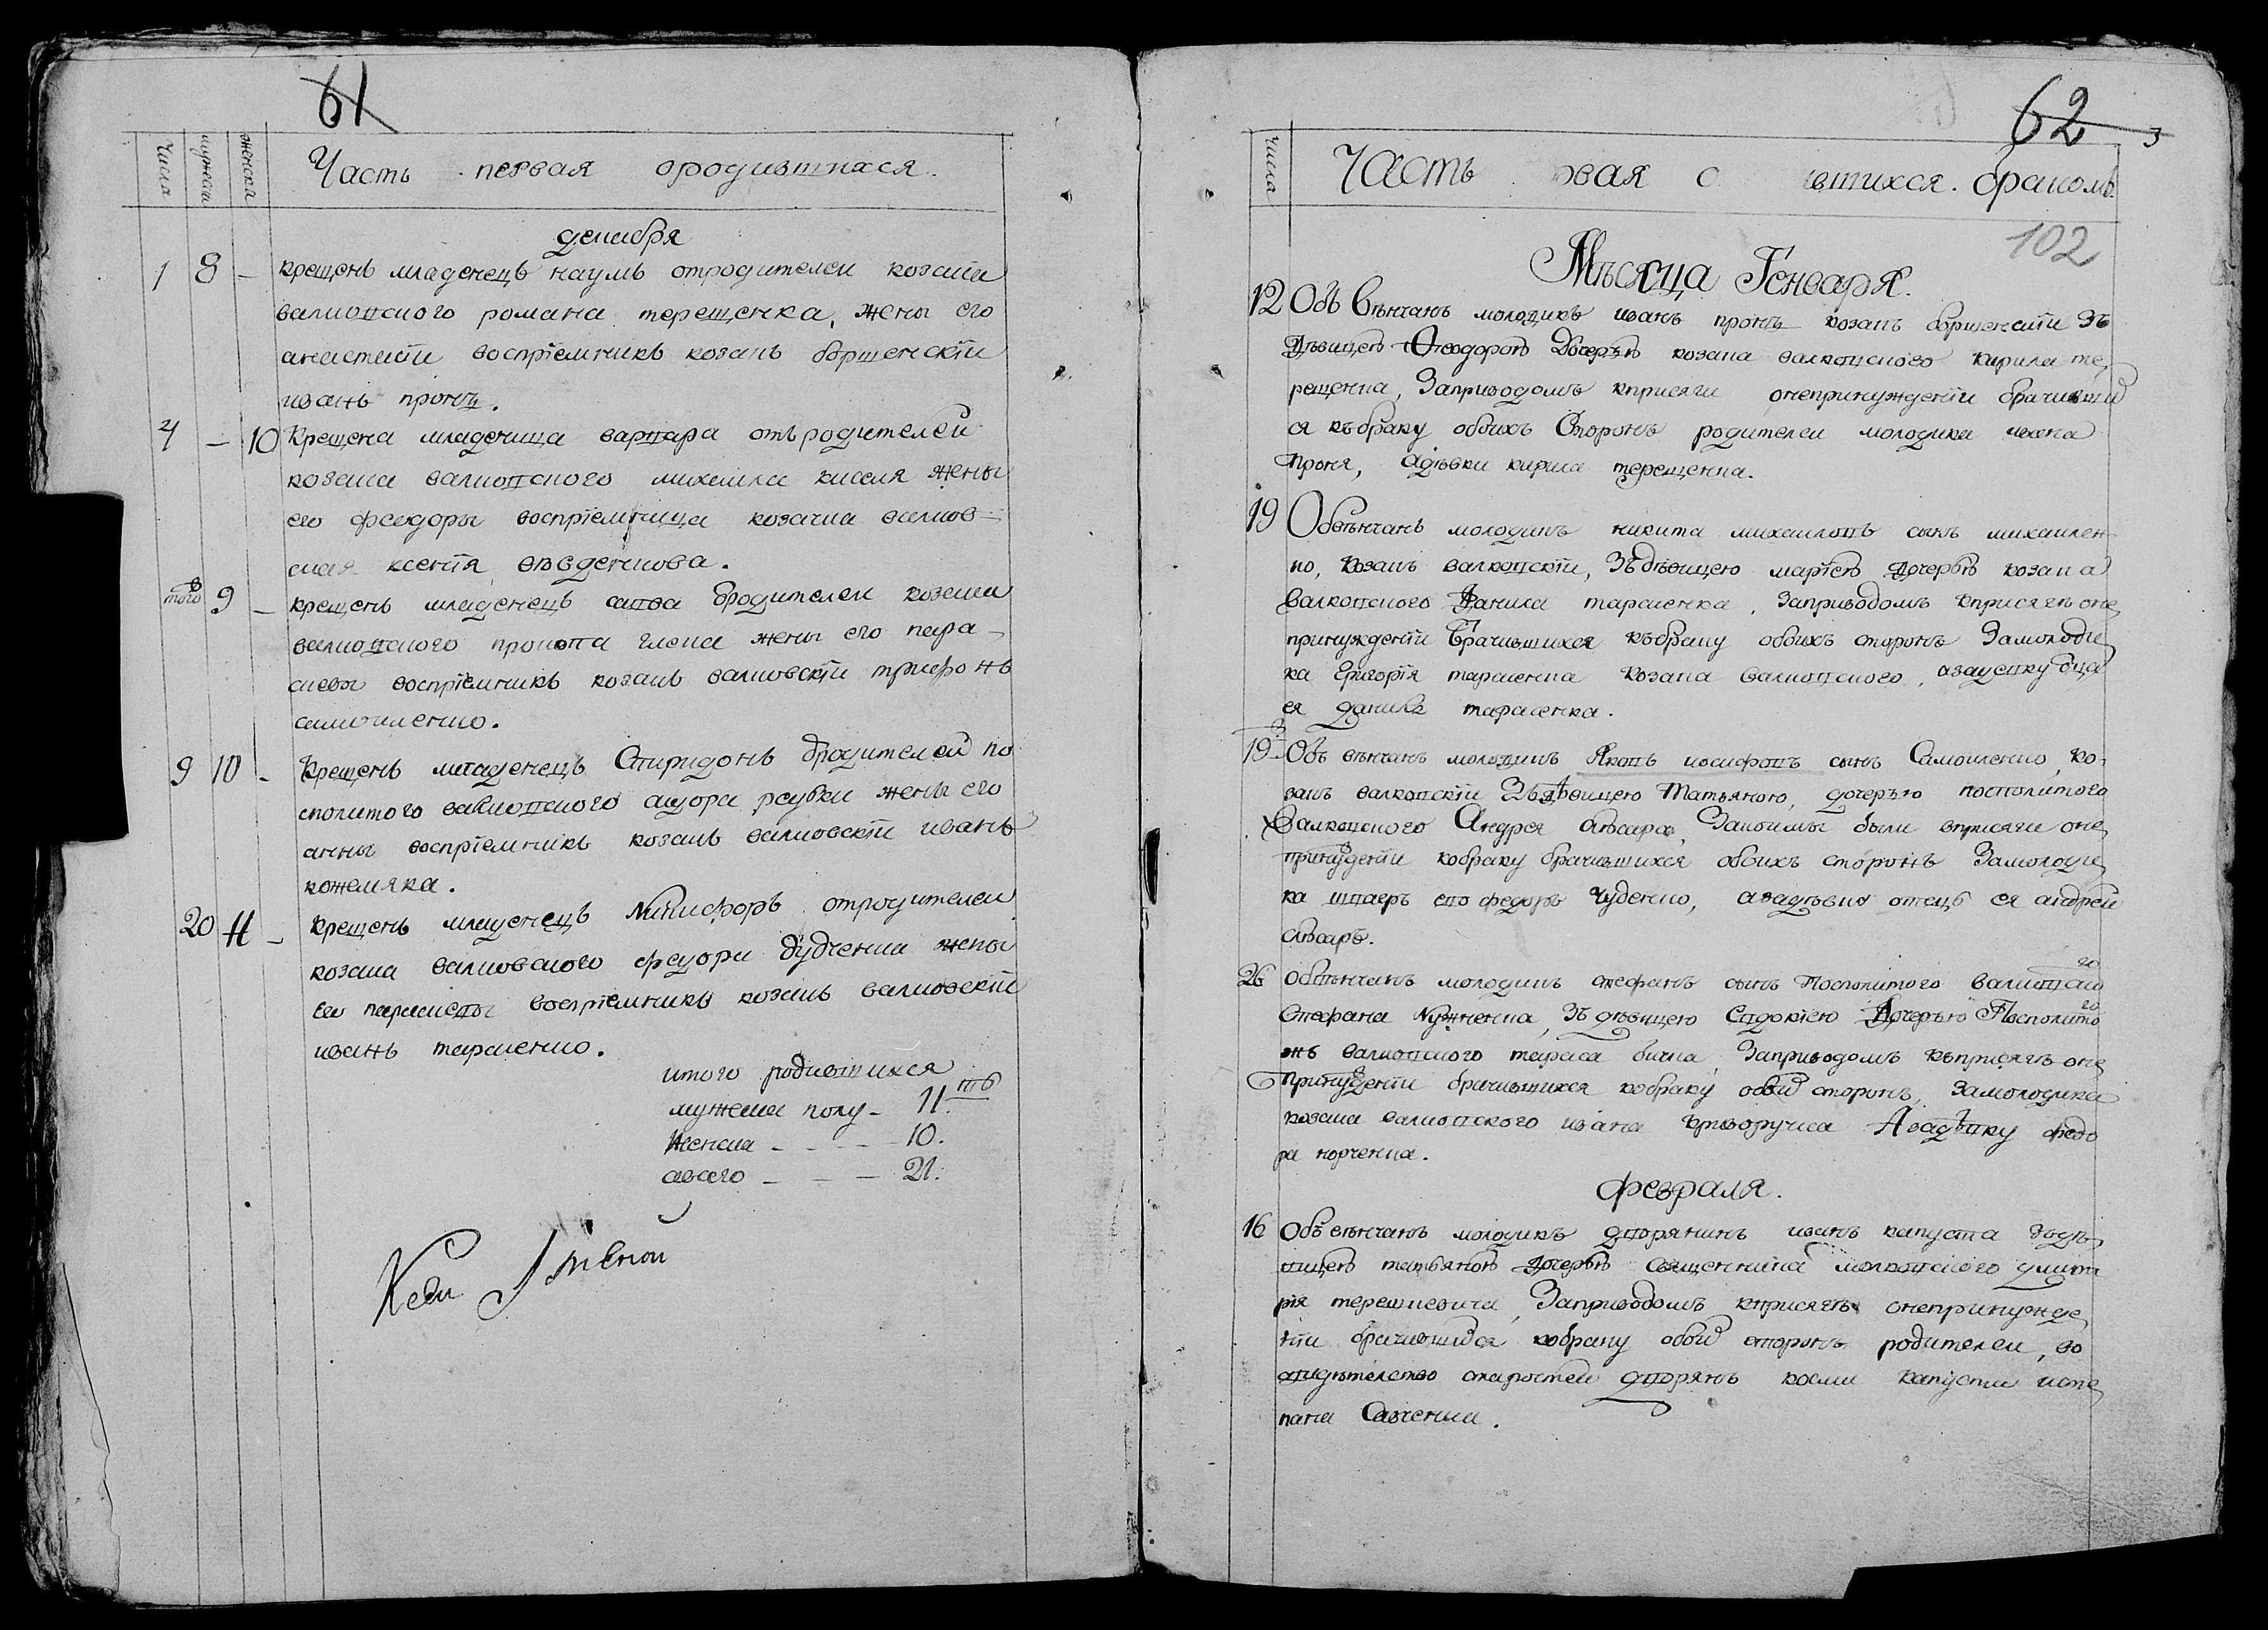 61
числа
мужеска
женска
Часть первая ородившихся.
декабря
1 8 – крещенъ младенецъ наумъ отродителеи козака
валковского романа терещенка, жены его
анастасіи воспріемникъ козакъ борщенскіи
иванъ пронь.
4 – 10 Крещена младеница варвара отъродителеи
козака валковского михаила киселя жены
его феодоры воспріемница козачка валков–
ская ксенія
того 9 – крещенъ младенецъ савва ѿродителеи козака
валковского прокопа жены его пара–
скевы воспріемникъ козакъ валковскіи трифонъ
самоиленко.
9 10 – Крещенъ младенецъ Спиридонъ ѿродителеи по
сполитого валковского жены его
анны воспріемникъ козакъ валковскіи иванъ
кожемяка.
20 11 – Крещенъ младенецъ Никифоръ отродителеи
козака валковского феодора дудченка жены
его параскевы воспріемникъ козакъ валковскіи
иванъ тарасенко.
итого родившихся
мужеска полу – 11.
Женска – – – 10.
авсего – – – 21.
62
3
числа
Часть вая о вшихся. бракомъ
102
Мѣсяца Генваря.
12 Объ вѣнчанъ молодикъ иванъ пронь козакъ борщенскіи зъ
дѣвицею Феодорою дочерью козака валковского кирила те
рещенка, Заприводомъ кприсяги онепринужденіи брачивших
ся къбраку обоихъ сторонъ родителеи молодика ивана
проня, адѣвки кирила терещенка.
19 Обвѣнчанъ молодикъ никита михаиловъ сынъ михаилен
ко, козакъ валковскіи, Зъдѣвицею маріею дочерью козака
валковского Данила тарасенка, Заприводомъ кприсягѣ оне
принужденіи брачившихся къбраку обоихъ сторонъ Замолоди
ка Григорія тарасенка козака валковского, азадевку ѿца
ея данила тарасенка.
19 Объ вѣнчанъ молодикъ Яковъ иосифовъ сынъ Самоиленко, ко
закъ валковскіи Зъдѣвицею Татьяною, дочерью посполитого
валковского Андрея слѣсара, Закоимы были вприсяги оне
принужденіи кобраку брачившихся обоихъ сторонъ Замолоди
ка его федоръ Чуденко, азадѣвку отецъ ея андреи
слѣсаръ.
26 обвѣнчанъ молодикъ стефанъ сынъ Посполитого валковского
Стефана Нужненка, Зъ дѣвицею Евдокіею Дочерью Посполито
жъ валковского тараса бычка, Заприводомъ къприсягѣ оне
принужденіи брачившихся кобраку обоих сторонъ, Замолодика
козака валковского ивана криворучка Азадѣвку федо
ра корченка.
февраля.
16 Объ вѣнчанъ молодикъ дворянинъ иванъ капуста здѣ
вицею татьяною дочерью священника валковского дмит
рія терешкевича, Заприводомъ кприсягѣ онепринужде
ніи брачившихся кобраку обоих сторонъ родителеи, во
свидѣтелство старостеи дворянъ косми капусти исте
пана Савченка.